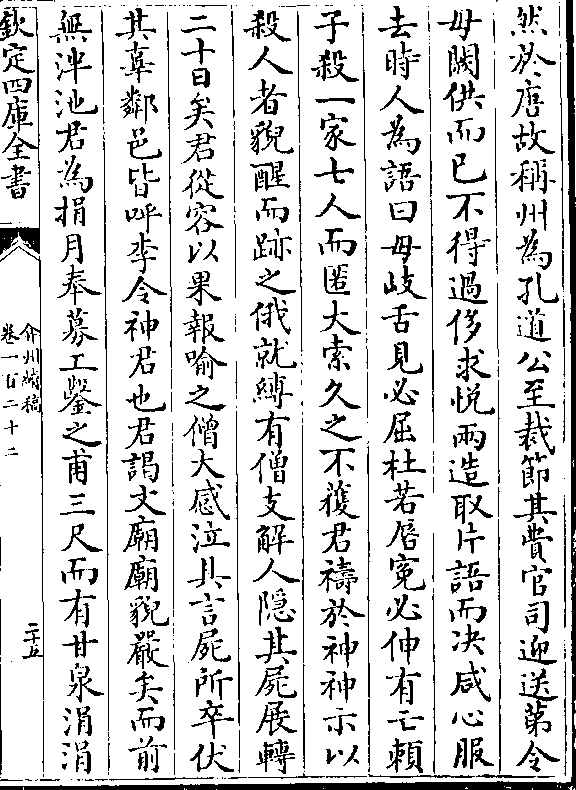 然於唐故稱州為孔道公至裁節其費官司迎送苐令
毋闕供而已不得過侈求悦兩造取片語而决咸心服
去時人為語曰毋岐舌見必屈杜若唇寃必伸有亡賴
子殺一家七人而匿大索久之不獲君禱於神神示以
殺人者貌醒而跡之俄就縛有僧支解人隠其屍展轉
二十日矣君從容以果報喻之僧大感泣具言屍所卒伏
其辜鄰邑皆呼李令神君也君謁文廟廟貌嚴矣而前
無泮池君為捐月奉募工鑿之甫三尺而有甘泉涓涓
欽定四庫全書
弇州續稿
卷一百二十二
二十五